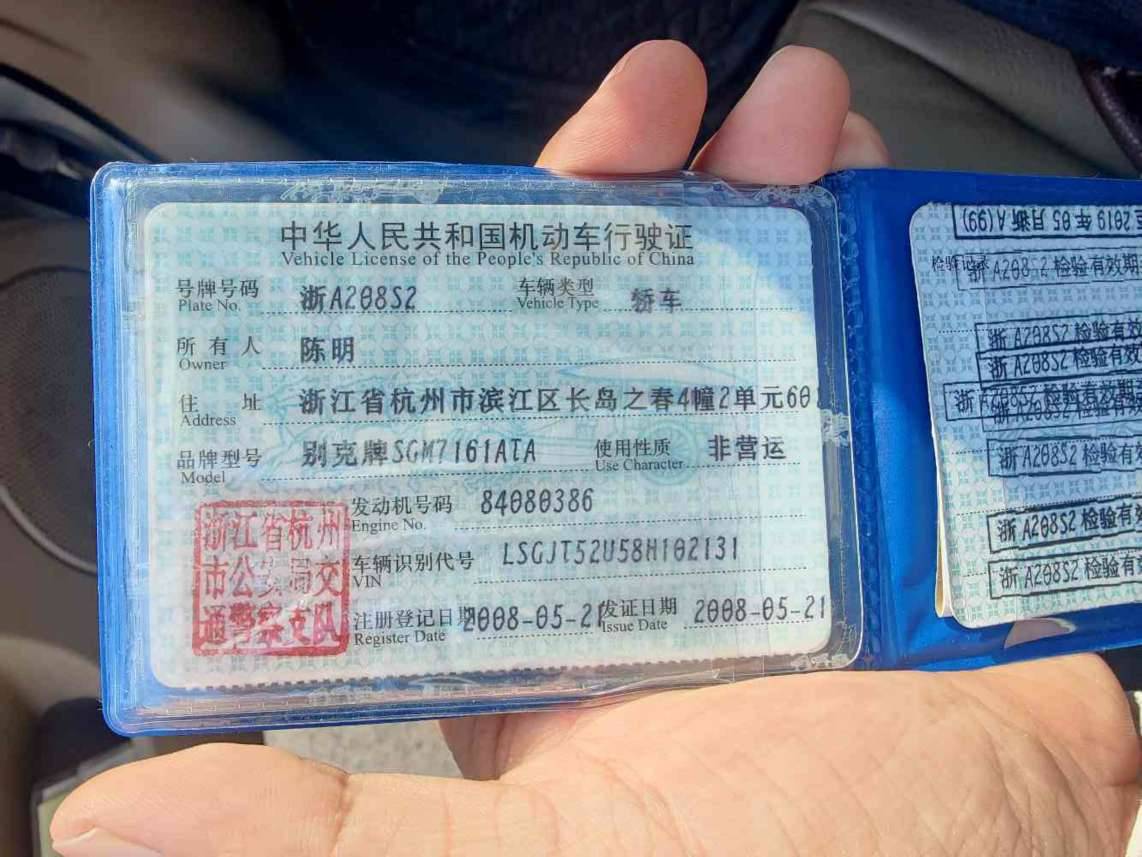 中华人民共和国机动车行驶证
Vehicle License of the People's Republic of China
号牌号码 浙A208S2 车辆类型 轿车
Plate No. Vehicle Type
所有人 陈明
Owner
住址 浙江省杭州市滨江区长岛之春4幢2单元60
Address
品牌型号 别克牌SGM7161ATA 使用性质 非营运
Model Use Character
发动机号码 84080386
Engine No.
车辆识别代号 LSGJT52U58H102131
VIN
注册登记日期 2008-05-21 发证日期 2008-05-21
Register Date Issue Date
浙江省杭州
市公安局交
通警察支队
2019年05月浙A(99)
检验记录
浙A208S2检验有效期
浙A208S2检验有效期
浙A208S2检验有效期
浙A208S2检验有效期
浙A208S2检验有效期
浙A208S2检验有效
浙A208S2检验有效
浙A208S2检验有效